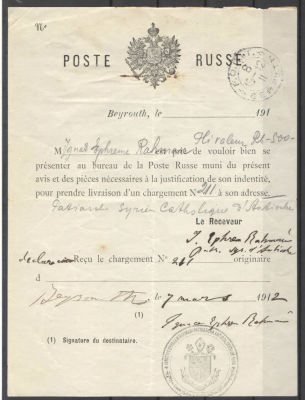 Nº
POSTE RUSSE
Beyrouth, le 191
M Ignace Ephrem Rahmani est prié de vouloir bien se
présenter au bureau de la Poste Russe muni du présent
avis et des pièces nécessaires à la justification de son identité,
pour prendre livraison d'un chargement Nº 211 à son adresse.
Patriarche Syrien Catholique d'Antioche
Le Receveur
I. Ephrem Rahmani
Patr. syr. d'Antioche
Reçu le chargement Nº 211 originaire
d
Beyrouth, le 7 mars 1912
(1)
Ignace Ephrem Rahmani
(1) Signature du destinataire.